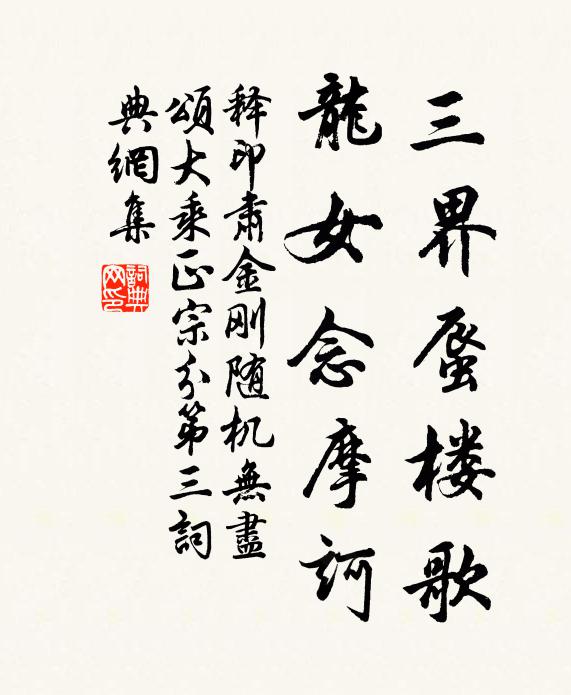 三界蜃楼歌
龍女念摩訶
释印肅金刚随机無盡
頌大乘正宗分第三詞
典網集
詞典網印